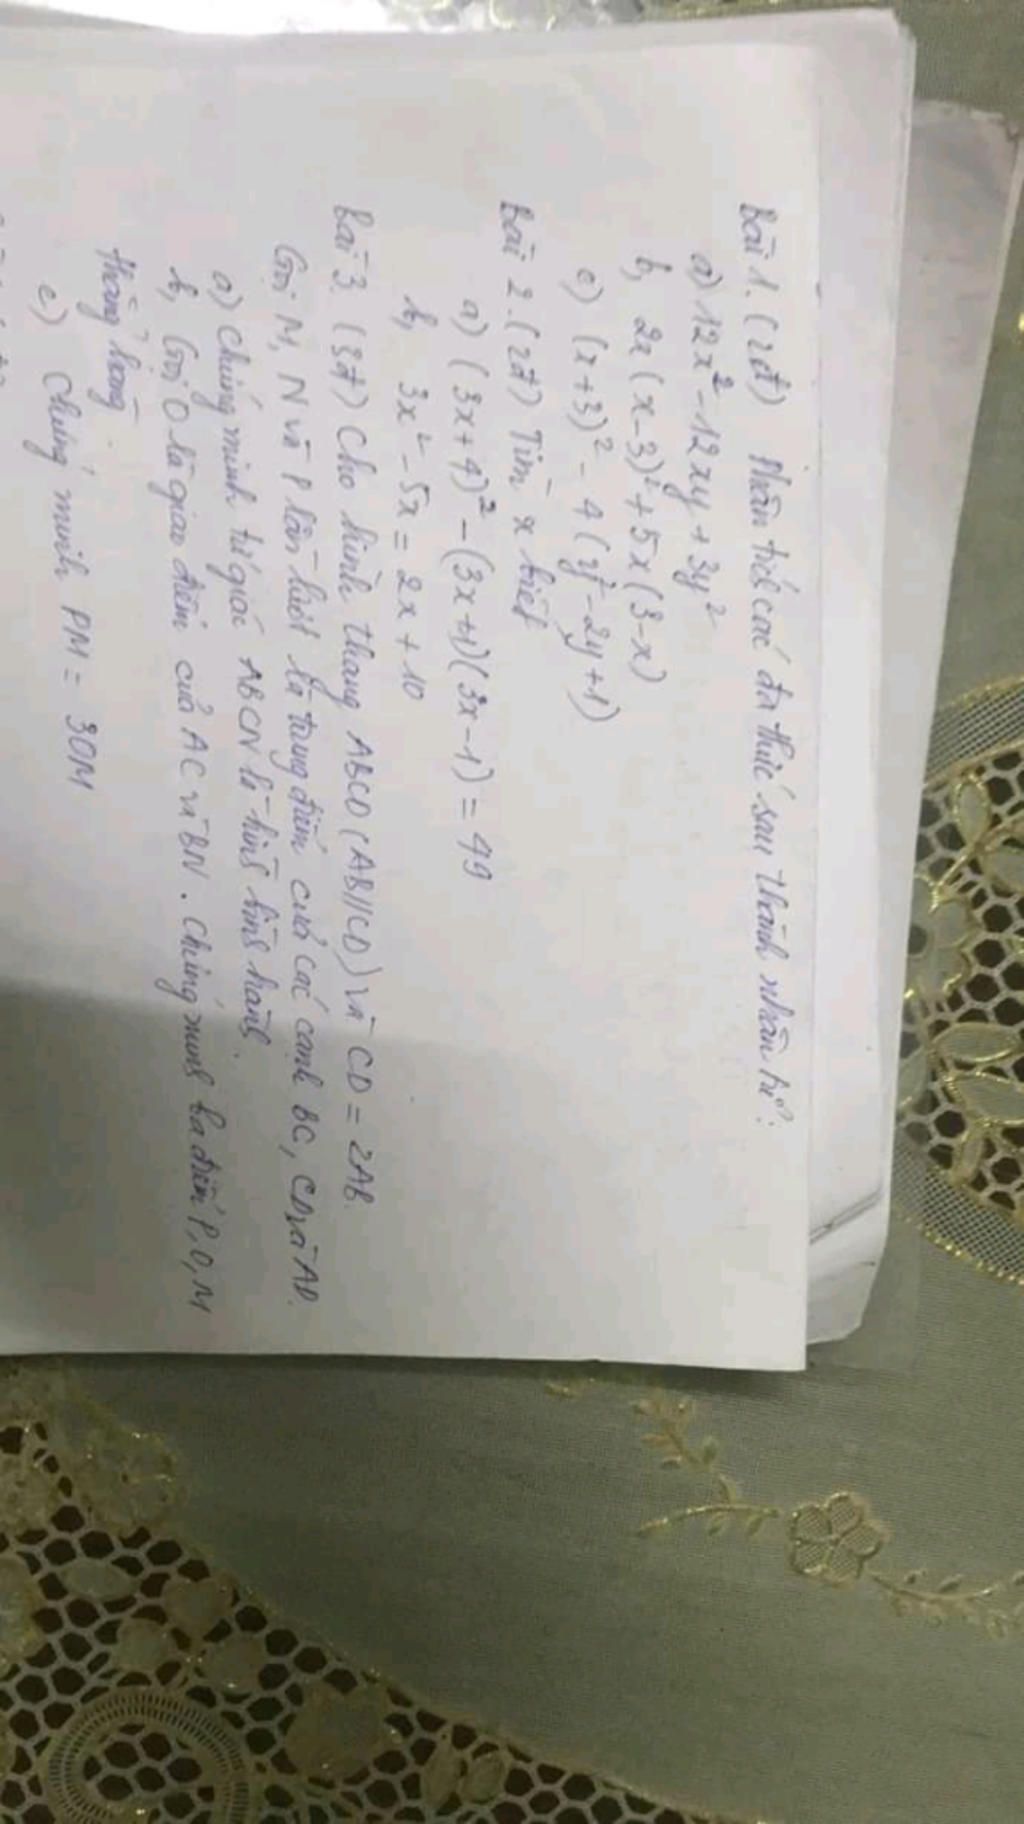 Bài 1. (2đ) Phân tích các đa thức sau thành nhân tử:
a) 12x² - 12xy + 3y²
b, 2x(x-3)² + 5x(3-x)
c) (x+3)² - 4(y² - 2y + 1)
Bài 2. (2đ) Tìm x biết
a) (3x+4)² - (3x+1)(3x-1) = 49
b, 3x² - 5x = 2x + 10
Bài 3. (3đ) Cho hình thang ABCD (AB//CD) và CD = 2AB.
Gọi M, N và P lần lượt là trung điểm của các cạnh BC, CD và AD.
a) Chứng minh tứ giác ABCN là hình bình hành.
b, Gọi O là giao điểm của AC và BN. Chứng minh ba điểm P, O, M
thẳng hàng
c) Chứng minh PM = 3OM